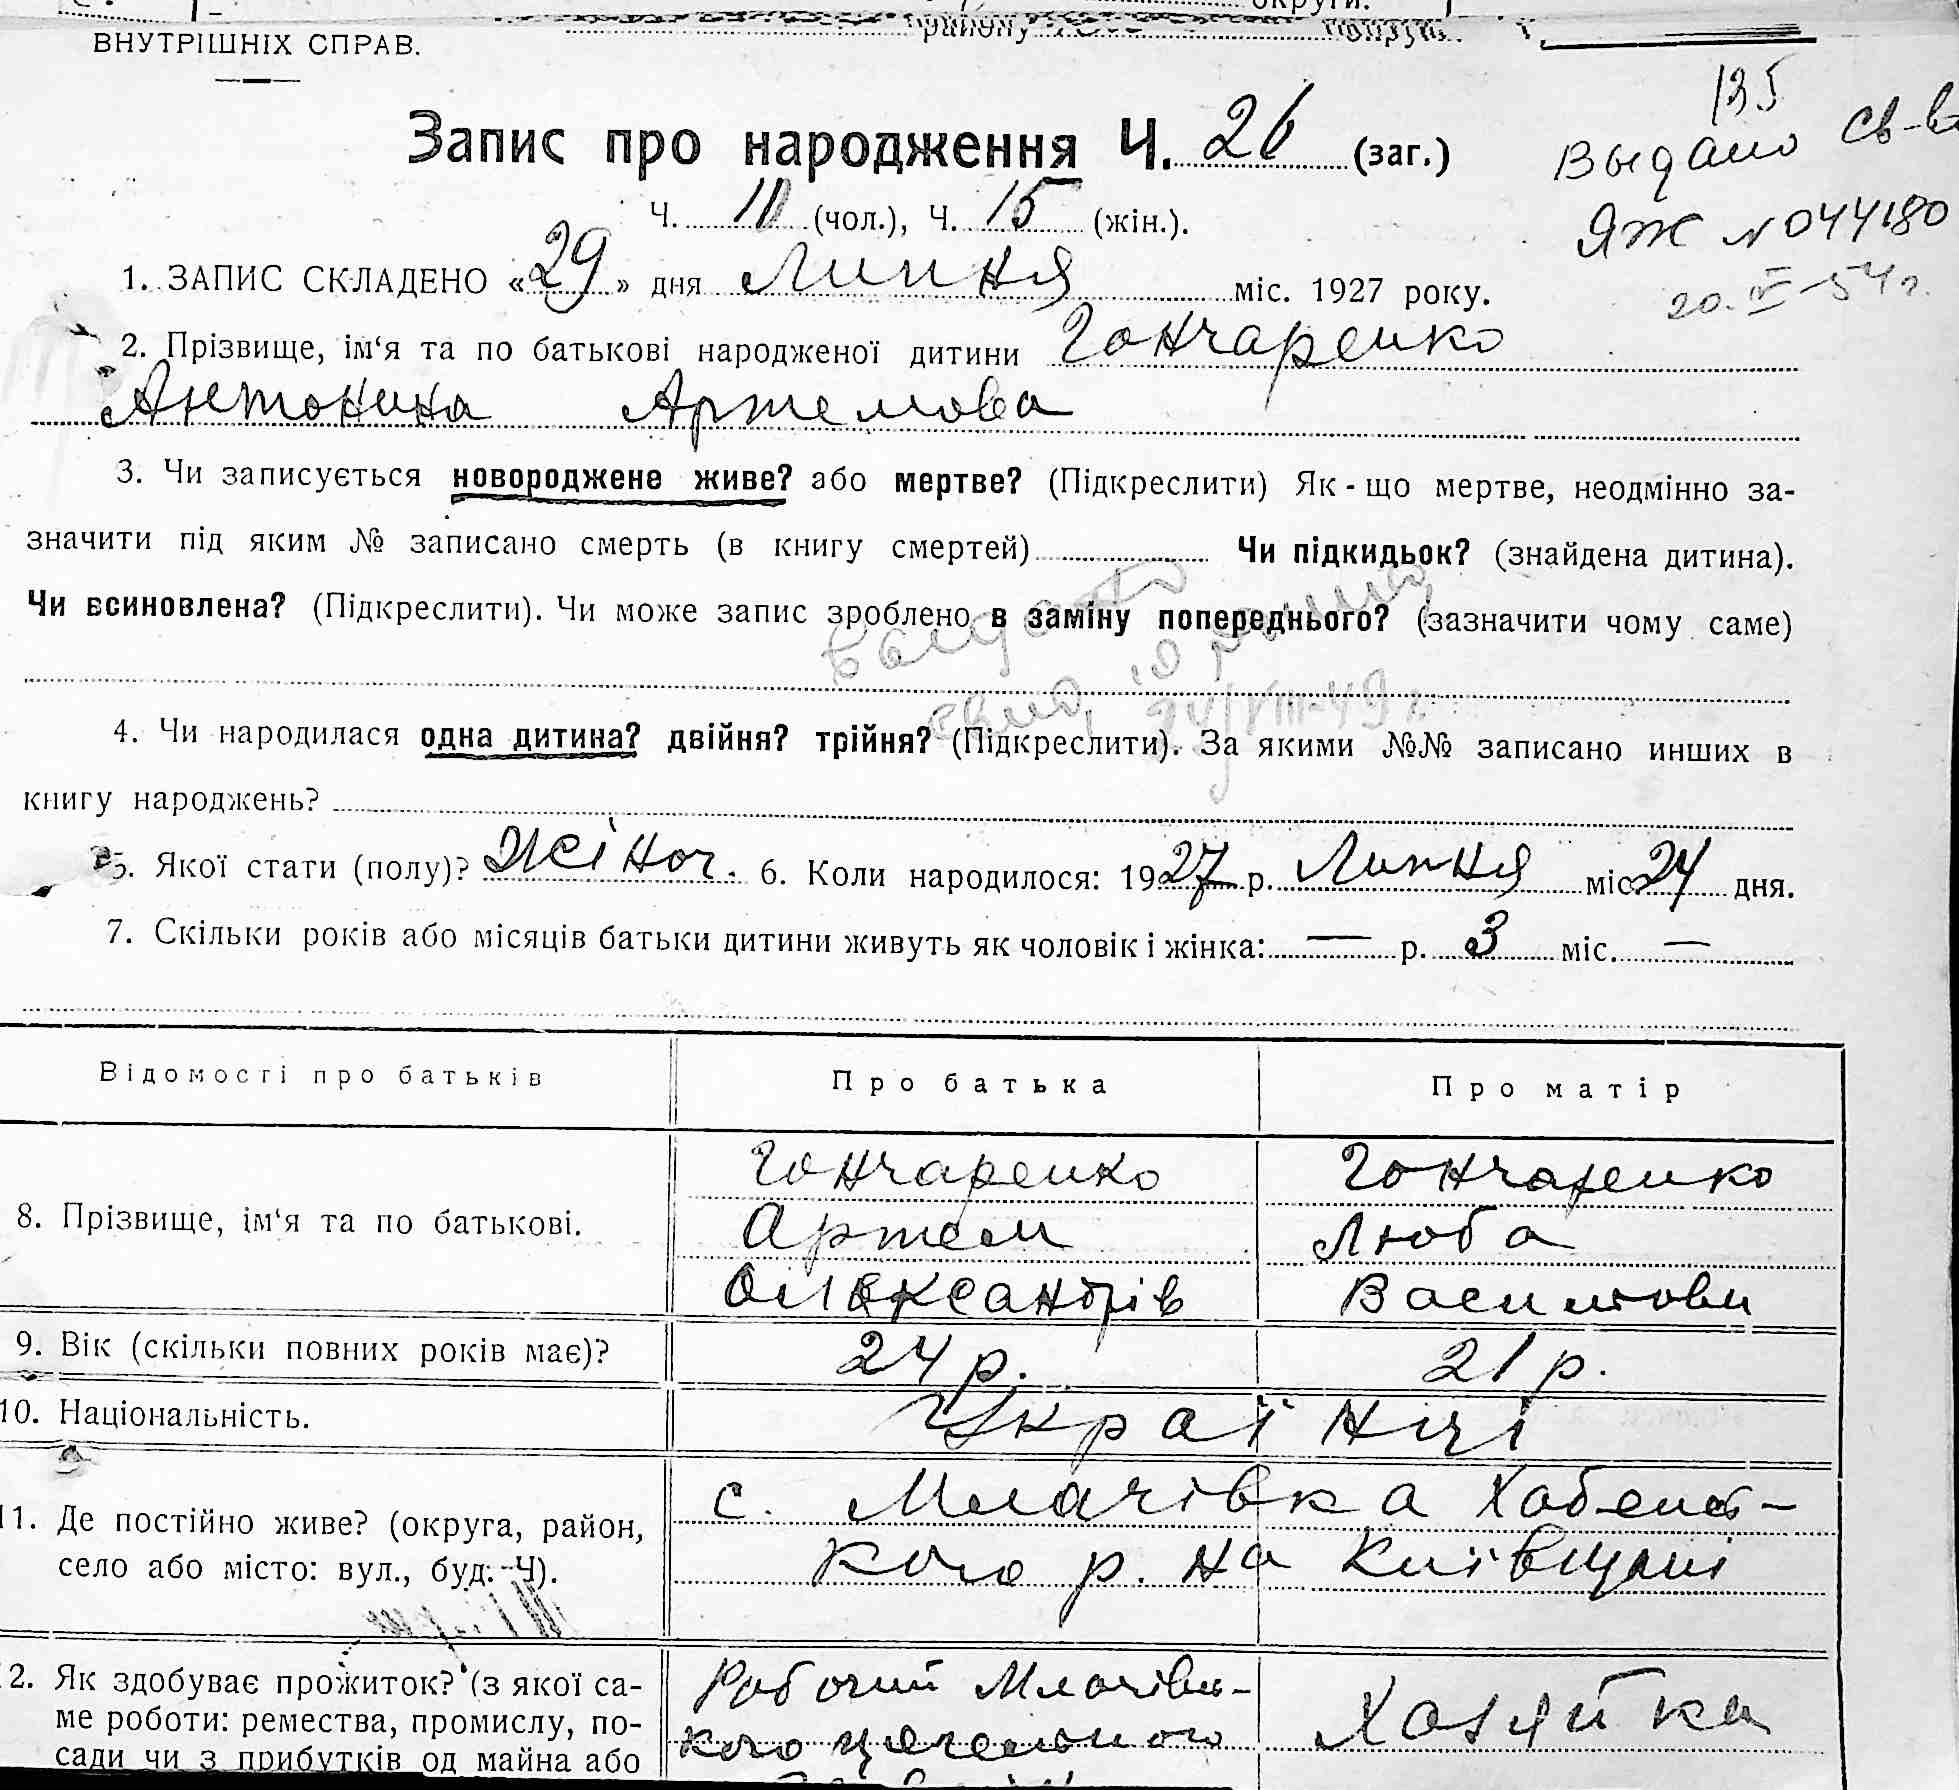 округи.
району
ВНУТРІШНІХ СПРАВ.
135
Запис про народження Ч. 26 (заг.)
Выдано св-во
Ч. 11 (чол.), Ч. 15 (жін.).
ЯЖ N 044180
1. ЗАПИС СКЛАДЕНО «29» дня Липня міс. 1927 року.
20. IV-54 г.
2. Прізвище, ім‘я та по батькові народженої дитини Гончаренко
Антонина Артемова
3. Чи записується новороджене живе? або мертве? (Підкреслити) Як-що мертве, неодмінно за-
значити під яким № записано смерть (в книгу смертей) Чи підкидьок? (знайдена дитина).
Чи всиновлена? (Підкреслити). Чи може запис зроблено в заміну попереднього? (зазначити чому саме)
выдано
свид. 24/VIII-49 г.
4. Чи народилася одна дитина? двійня? трійня? (Підкреслити). За якими №№ записано инших в
книгу народжень?
5. Якої стати (полу)? Жіноч. 6. Коли народилося: 1927 р. Липня міс. 24 дня.
7. Скільки років або місяців батьки дитини живуть як чоловік і жінка: — р. 3 міс. —
Відомості про батьків Про батька Про матір
8. Прізвище, ім‘я та по батькові.
Гончаренко Гончаренко
Артем Люба
Олександрів Василови
9. Вік (скільки повних років має)? 24 р. 21 р.
10. Національність. Українці
11. Де постійно живе? (округа, район,
село або місто: вул., буд. Ч).
с. Млачівка Хабенс-
кого р. на Київщині
12. Як здобуває прожиток? (з якої са-
ме роботи: ремества, промислу, по-
сади чи з прибутків од майна або
Робочий Млачівсь-
кого цегельного
Хазяйка